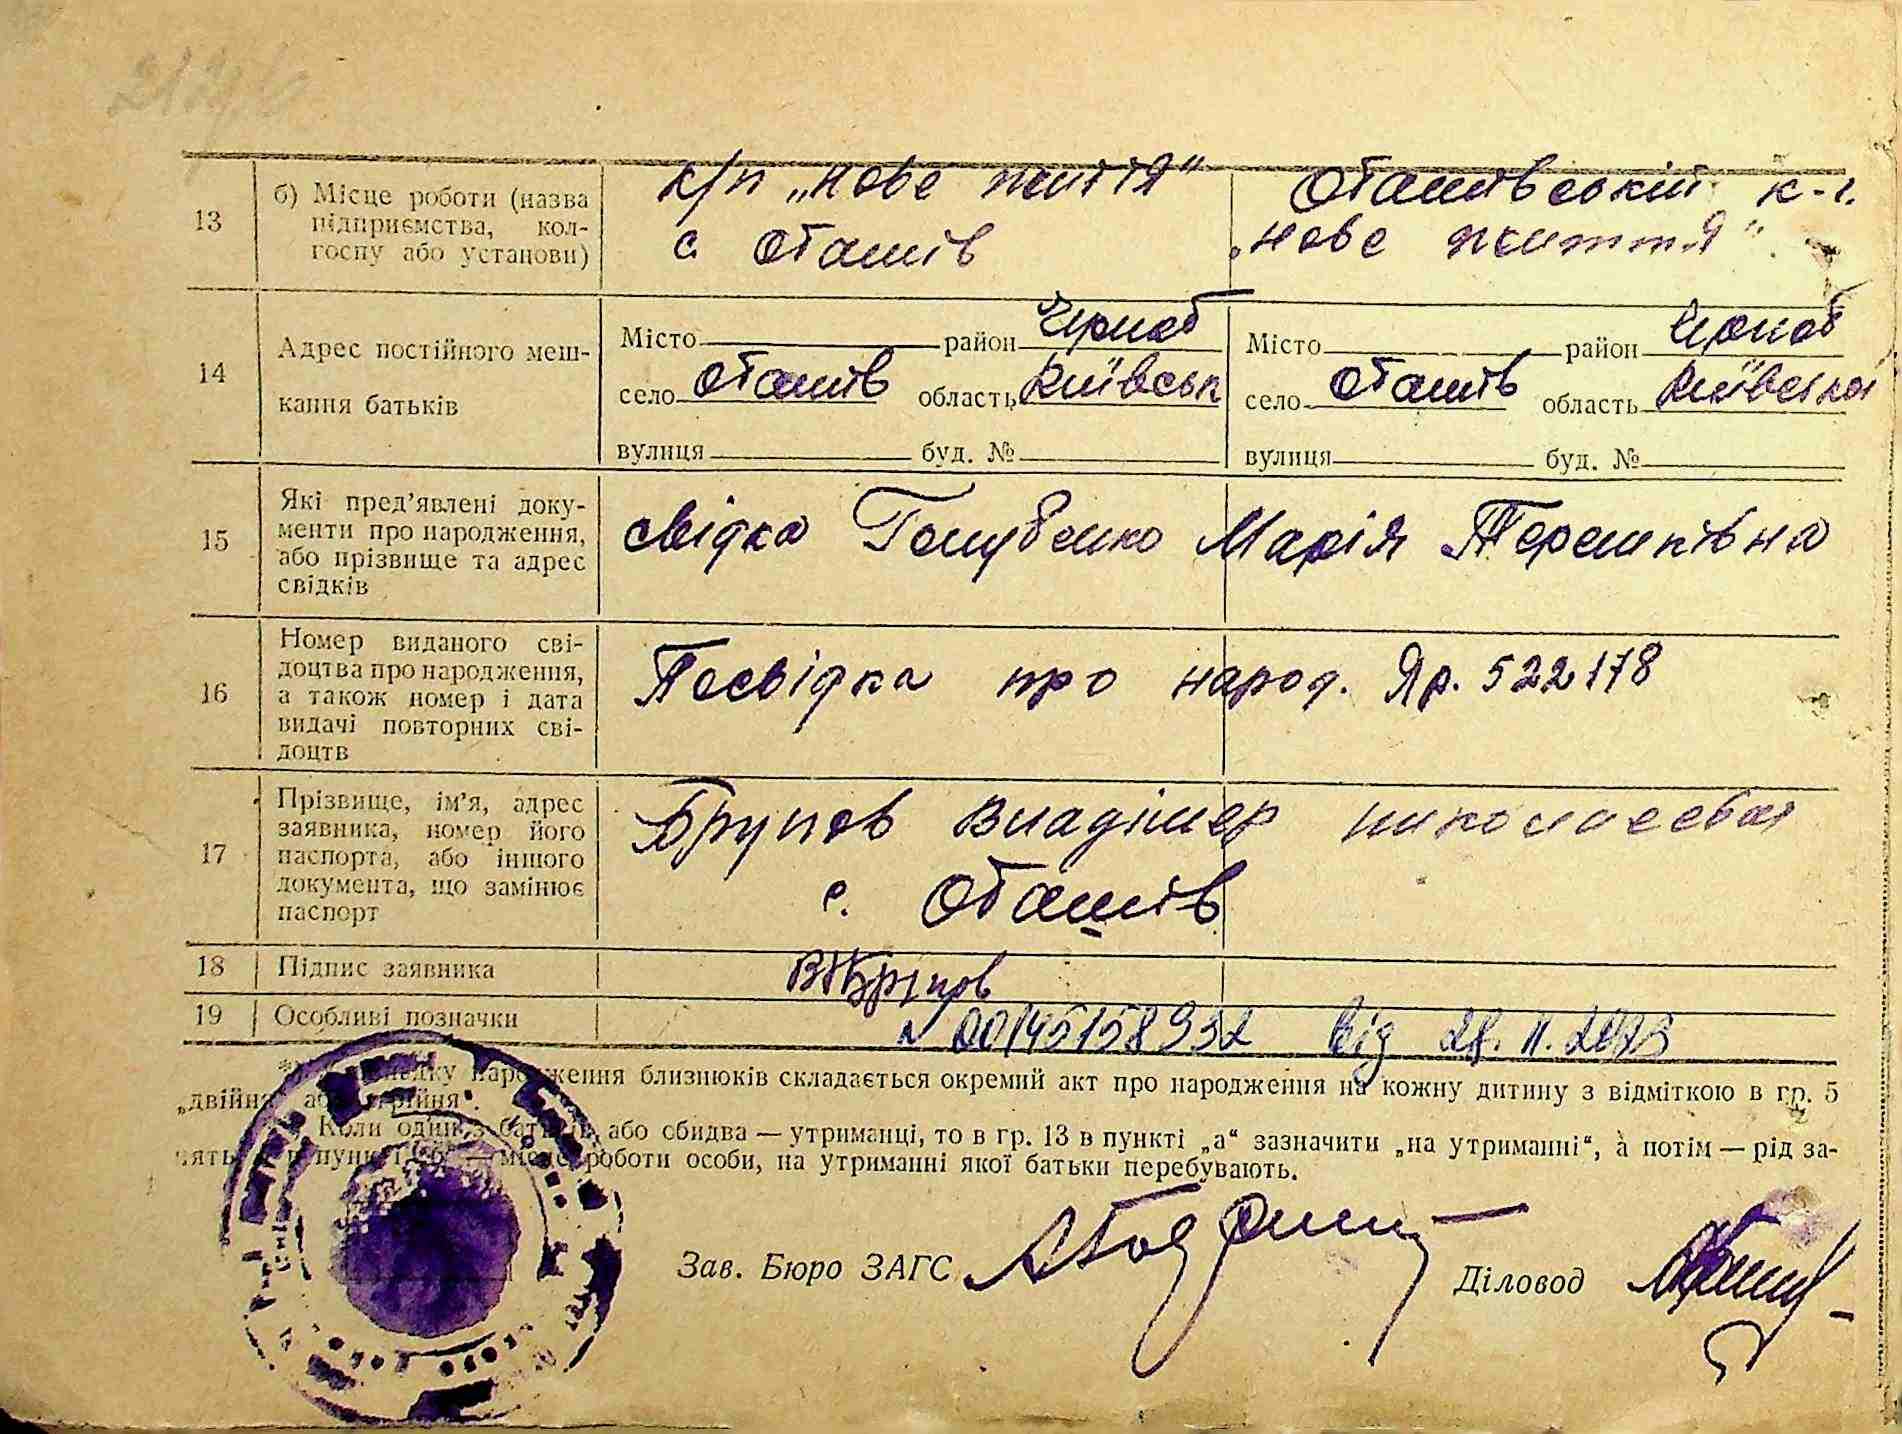 13
б) Місце роботи (назва підприємства, колгоспу або установи)
к/п „нове життя“
с. Оташів
Оташівській к-г.
„нове життя“
14
Адрес постійного мешкання батьків
Місто район Чорноб
село Оташів область Київськ
вулиця буд. №
Місто район Чорноб
село Оташів область Київська
вулиця буд. №
15
Які пред’явлені документи про народження, або прізвище та адрес свідків
свідка Голубенко Марія Терешківна
16
Номер виданого свідоцтва про народження, а також номер і дата видачі повторних свідоцтв
Посвідка про народ. Яр. 522178
17
Прізвище, ім’я, адрес заявника, номер його паспорта, або іншого документа, що замінює паспорт
Брупов Владімер
с. Оташів
18
Підпис заявника
19
Особливі позначки
N 00145158932 від 28.11.2023
народження близнюків складається окремий акт про народження на кожну дитину з відміткою в гр. 5
„двійня“
Коли один з батьків або обидва — утриманці, то в гр. 13 в пункті „а“ зазначити „на утриманні“, а потім — рід за-
нять, в пункті „б“ — місце роботи особи, на утриманні якої батьки перебувають.
Зав. Бюро ЗАГС
Діловод